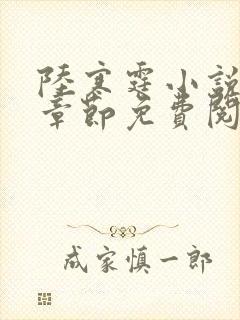 陸寒霆小說
章節免費閱
成家慎一郎